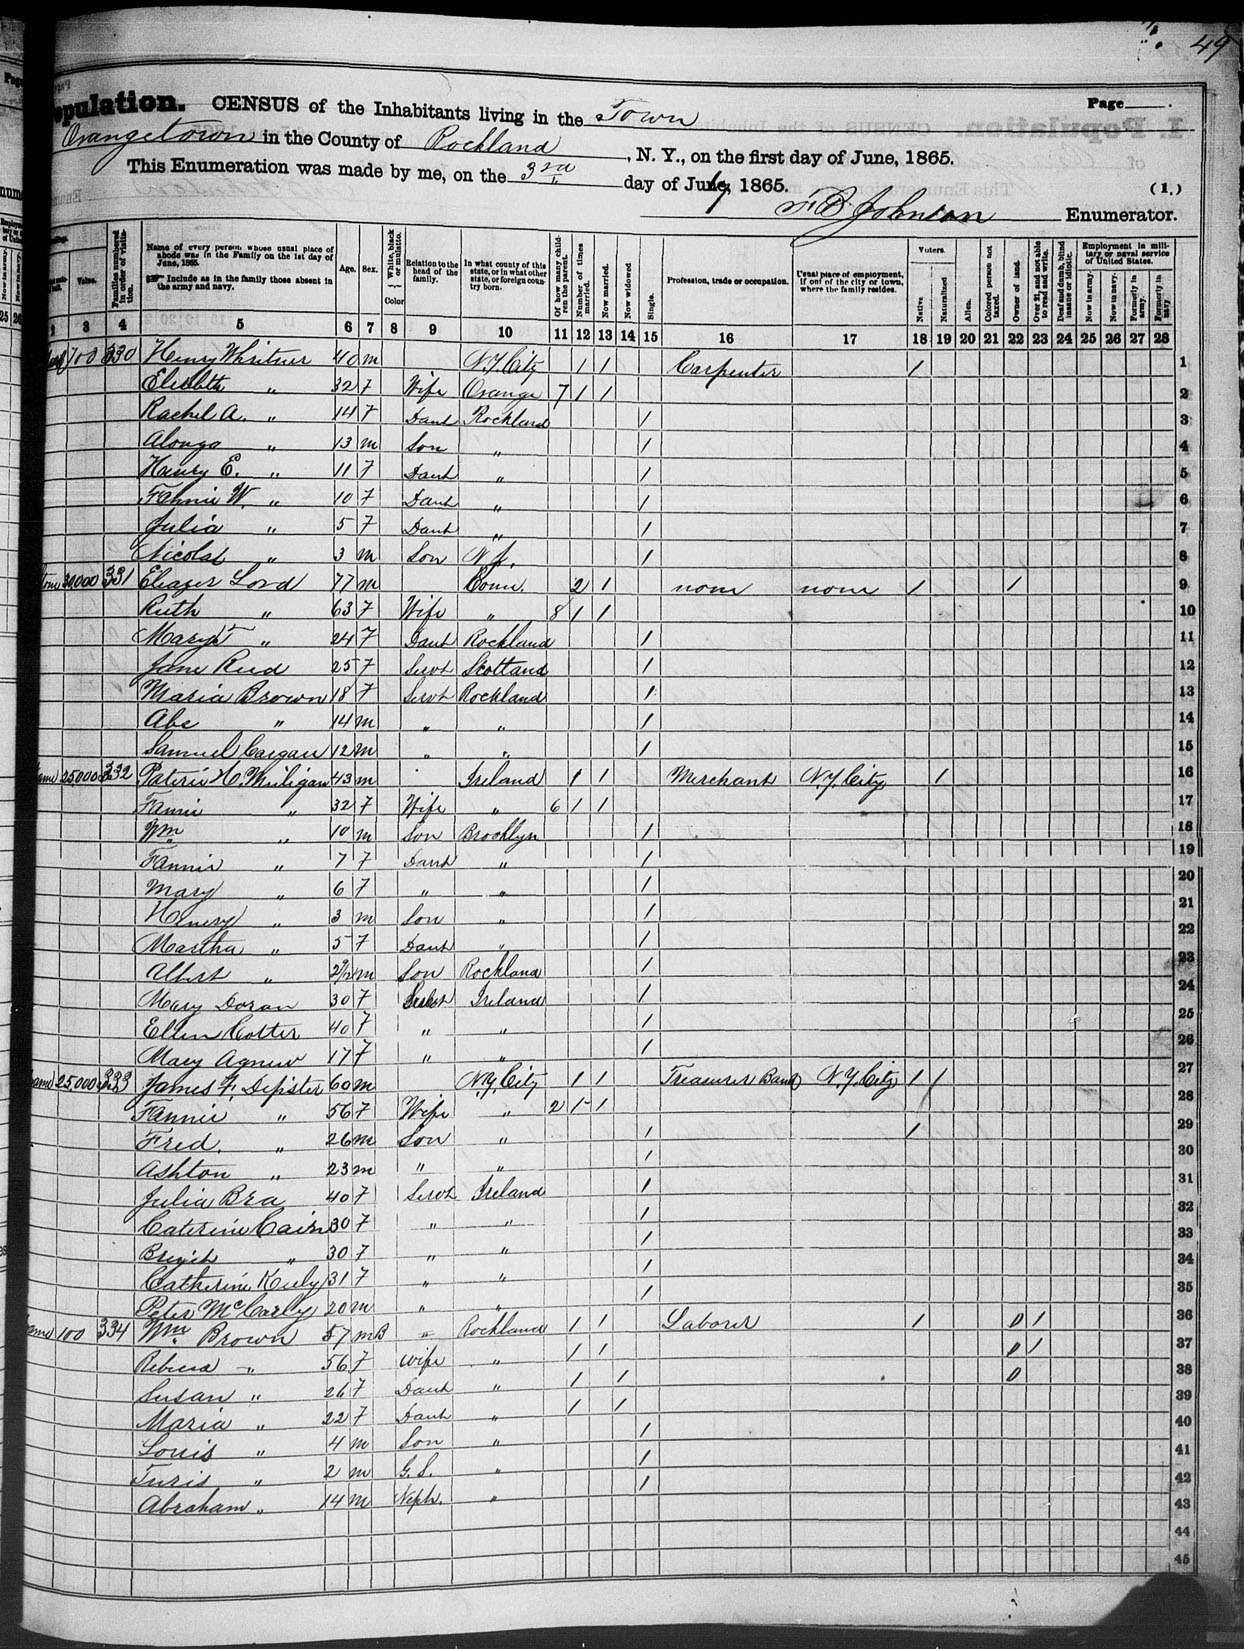 49
Population. CENSUS of the Inhabitants living in the Town Page
Orangetown in the County of Rockland, N. Y., on the first day of June, 1865.
This Enumeration was made by me, on the 3rd day of July, 1865. (1.)
Johnson Enumerator.
Value. Families numbered in order of visitation. Name of every person whose usual place of abode was in the Family on the 1st day of June, 1865. Include as in the family those absent in the army and navy. Age. Sex. White, black or mulatto. Color Relation to the head of the family. In what county of this state, or in what other state, or foreign country born. Of how many children the parent. Number of times married. Now married. Now widowed Single. Profession, trade or occupation. Usual place of employment, if out of the city or town, where the family resides. Voters. Native Naturalized Alien. Colored person not taxed. Owner of land. Over 21, and not able to read and write. Deaf and dumb, blind insane or idiotic. Employment in military or naval service of United States. Now in army. Now in navy. Formerly in army. Formerly in navy.
2 3 4 5 6 7 8 9 10 11 12 13 14 15 16 17 18 19 20 21 22 23 24 25 26 27 28
700 330 Henry Whritner 40 m N.Y. City 1 1 Carpenter 1 1
Elisbth " 32 F Wife Orange 7 1 1 2
Rachel A. " 14 F Daut Rockland 1 3
Alonzo " 13 m Son " 1 4
Henry E. " 11 F Daut " 1 5
Fannie W. " 10 F Daut " 1 6
Julia " 5 F Daut " 1 7
Nicolas " 3 m Son N.J. 1 8
30000 331 Eliazer Lord 77 m Conn. 2 1 none none 1 1 9
Ruth " 63 F Wife " 8 1 1 10
Mary " 24 F Daut Rockland 1 11
Jane Reed 25 F Servt Scotland 1 12
Maria Brown 18 F Servt Rockland 1 13
Abe " 14 m " " 1 14
Samuel 12 m " " 1 15
25000 332 43 m Ireland 1 1 Merchant N.Y. City 1 16
Fannie " 32 F Wife " 6 1 1 17
Wm " 10 m Son Brooklyn 1 18
Fannie " 7 F Daut " 1 19
Mary " 6 F " " 1 20
Henery " 3 m Son " 1 21
Martha " 5 F Daut " 1 22
Albert " m Son Rockland 1 23
Mary Doran 30 F Servt Ireland 1 24
Ellen Cotter 40 F " " 1 25
Mary Agnew 17 F " " 1 26
25,000 333 James F. Depister 60 m N.Y. City 1 1 Treasurer Bank N.Y. City 1 1 27
Fannie " 56 F Wife " 2 1 1 28
Fred. " 26 m Son " 1 1 29
Ashton " 23 m " " 1 30
Julia Bra 40 F Servt Ireland 1 31
Caterine Cain 30 F " " 1 32
" 30 F " " 1 33
Catherine Kiely 31 F " " 1 34
Peter McCarly 20 m " " 1 35
100 334 Wm Brown 57 m B " Rockland 1 1 Laborer 1 0 1 36
Rebecca " 56 F wife " 1 1 0 1 37
Susan " 26 F Daut " 1 1 0 38
Maria " 22 F Daut " 1 1 39
Louis " 4 m Son " 1 40
" 2 m G.S. " 1 41
Abraham " 14 m Neph. " 1 42
43
44
45